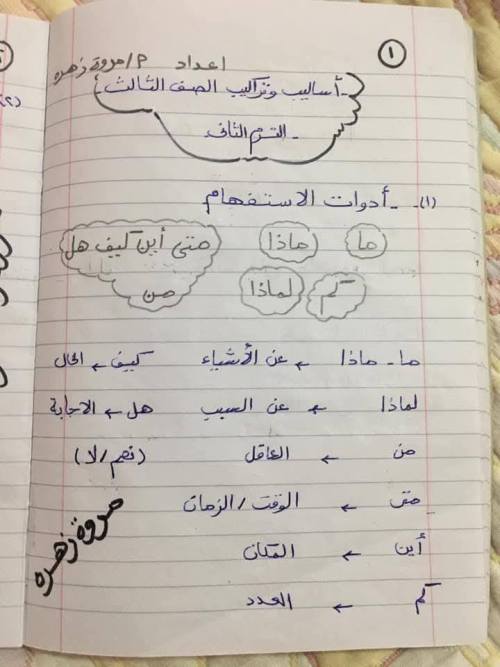 ١
اعداد م/مروة زهره
- أساليب وتراكيب الصف الثالث -
- الترم الثانى
(١) - أدوات الاستفهام
ما ماذا متى أين كيف هل
كم لماذا من
ما - ماذا ← عن الأشياء كيف ← الحال
لماذا ← عن السبب هل ← الاجابة
من ← العاقل (نعم/لا)
متى ← الوقت/الزمان
أين ← المكان
كم ← العدد
مروة زهره
(٢)